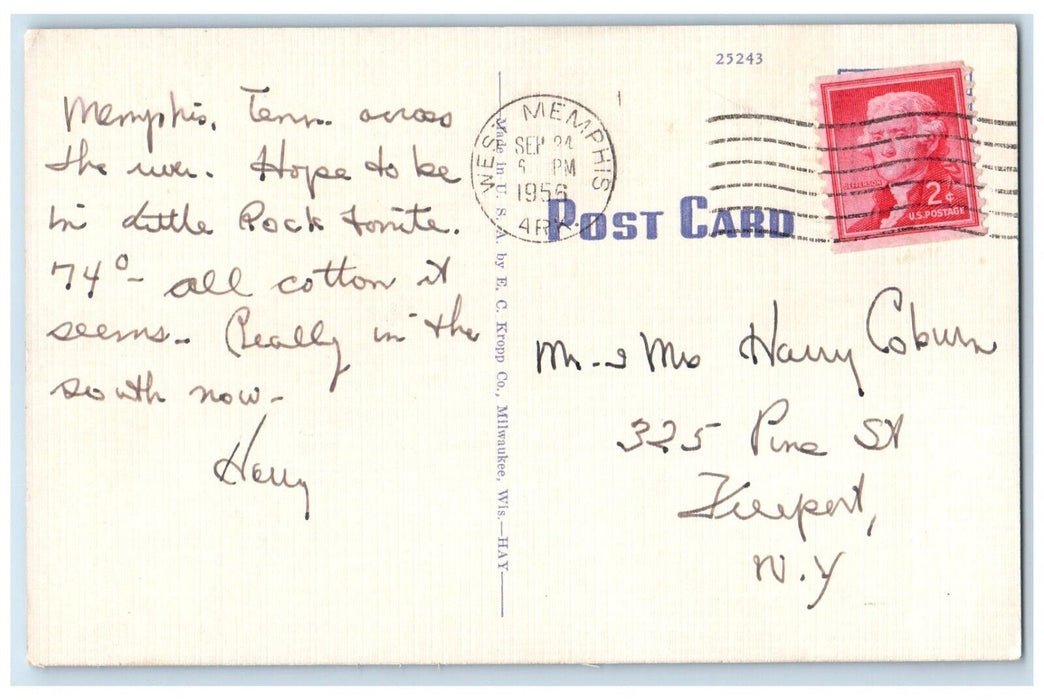 25243
Memphis, Tenn. across
the river. Hope to be
in Little Rock tonite.
74° - all cotton it
seems. Really in the
south now -
Harry
Made in U. S. A. by E. C. Kropp Co., Milwaukee, Wis.—HAY
WEST MEMPHIS
SEP 24
PM
1956
ARK.
JEFFERSON
2¢
U.S. POSTAGE
POST CARD
Mr. & Mrs Harry Coburn
325 Pine St
Freeport,
N.Y